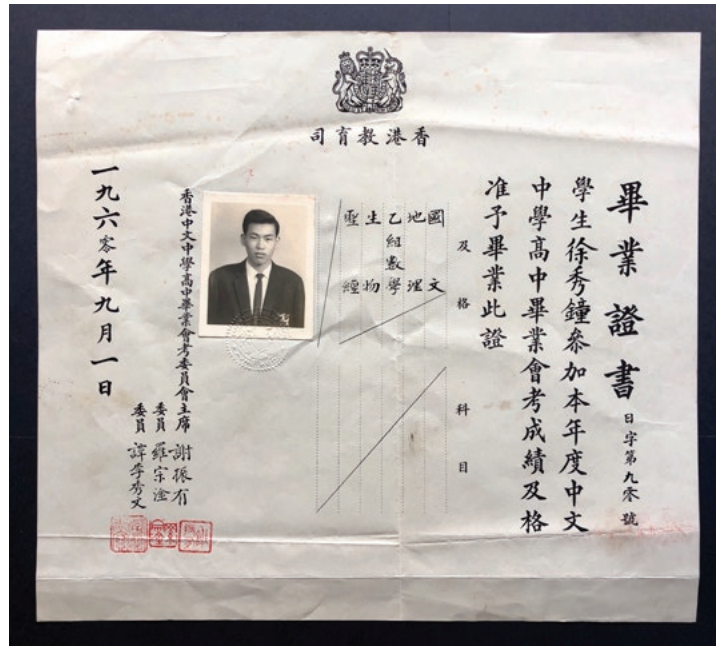 香港教育司
畢業證書
日字第九零號
學生徐秀鐘參加本年度中文
中學高中畢業會考成績及格
准予畢業此證
及格科目
國文
地理
乙組數學
生物
聖經
香港中文中學高中畢業會考委員會主席 謝振有
委員 羅宗淦
委員 譚李秀文
一九六零年九月一日